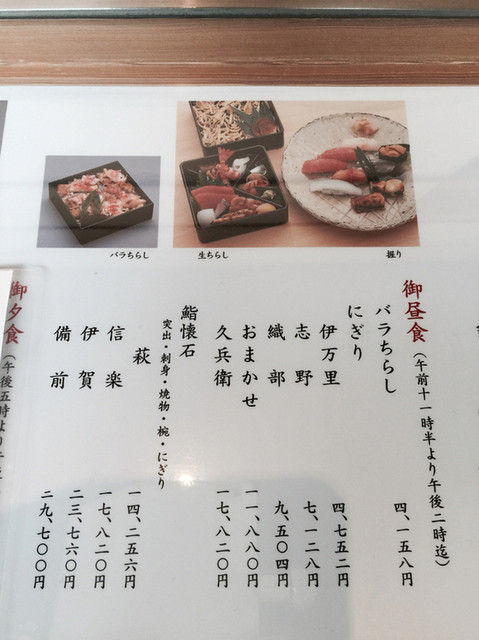 バラちらし
生ちらし
握り
御昼食（午前十一時半より午後二時迄）
バラちらし 四、一五八円
にぎり
伊万里 四、七五二円
志野 七、一二八円
織部 九、五〇四円
おまかせ 一一、八八〇円
久兵衛 一七、八二〇円
鮨懐石
突出・刺身・焼物・椀・にぎり
萩 一四、二五六円
信楽 一七、八二〇円
伊賀 二三、七六〇円
備前 二九、七〇〇円
御夕食（午後五時より